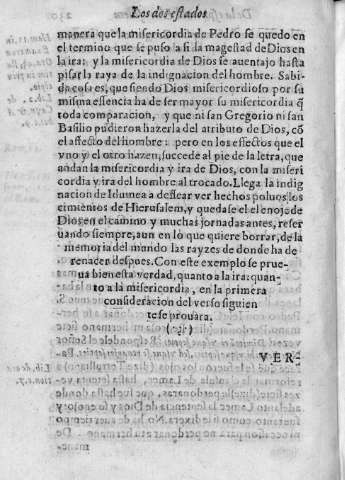 Los dos estados
manera que la misericordia de Pedro se quedo en
el termino que se puso a si la magestad de Dios en
la ira: y la misericordia de Dios se auentajo hasta
pisar la raya de la indignacion del hombre. Sabi-
da cosa es, que siendo Dios misericordioso por su
misma essencia ha de ser mayor su misericordia q̃
toda comparacion, y que ni san Gregorio ni san
Basilio pudieron hazerla del atributo de Dios, cõ
el affecto del hombre: pero en los effectos que el
vno y el otro hazen, succede al pie de la letra, que
andan la misericordia y ira de Dios, con la miseri
cordia y ira del hombre al trocado. Llega la indig
nacion de Idumea a dessear ver hechos poluos los
cimientos de Hierusalem, y quedase el el enojo de
Dios en el camino y muchas jornadas antes, reser
uando siempre, aun en lo que quiere borrar, de la
memoria del mundo las rayzes de donde ha de
renacer despues. Con este exemplo se prue-
ua bien esta verdad, quanto a la ira: quan-
to a la misericordia, en la primera
consideracion del verso siguien
te se prouara.
VER-